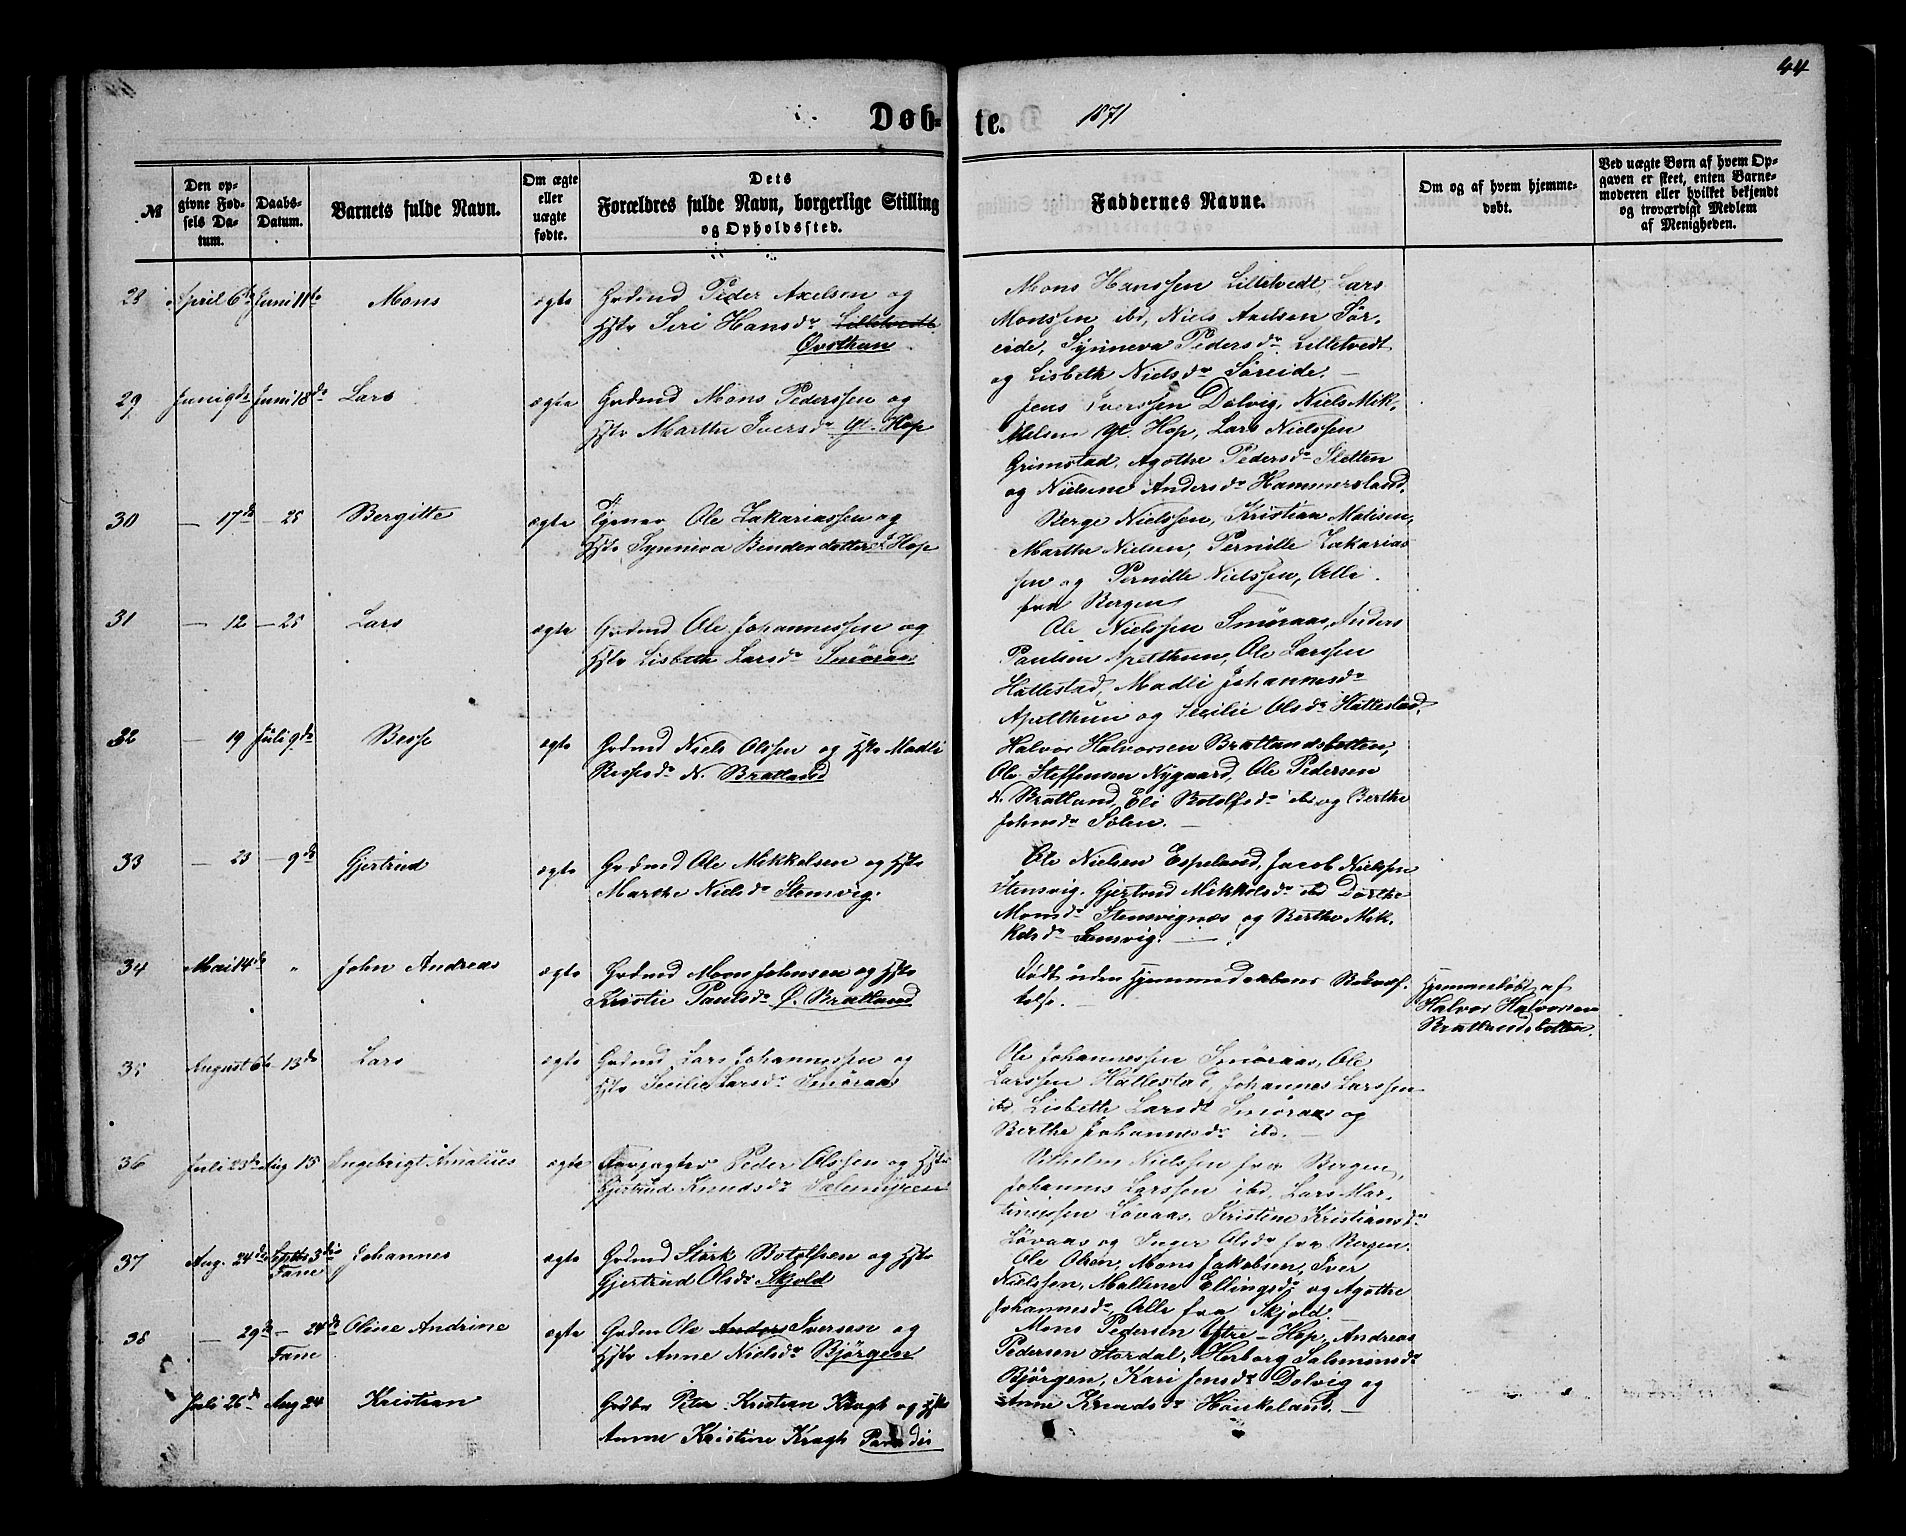 44
Døb-te. 1871
№
Den op-
givne Fød-
sels Da-
tum.
Daabs-
Datum.
Barnets fulde Navn.
Om ægte
eller
uægte
fødte.
Dets
Forældres fulde Navn, borgerlige Stilling
og Opholdssted.
Faddernes Navne.
Om og af hvem hjemme-
døbt.
Ved uægte Børn af hvem Op-
gaven er skeet, enten Barne-
moderen eller hvilket bekjendt
og troværdigt Medlem
af Menigheden.
28 April 6te Juni 11te Mons ægte Grdmd Peder Axelsen og
Hstr Siri Hansdr Lilletvedt
Øvsthun
Mons Hanssen Lilletvedt, Lars
Monssen ibd, Niels Axelsen Sör-
eide, Synneva Pedersdr Lilletvedt
og Lisbeth Nielsdr Söreide. —
29 Juni 9de Juni 18de Lars ægte Grdmd Mons Pederssen og
Hstr Marthe Iversdr Yt. Hop
Jens Iverssen Dolvig, Niels Mik-
kelsen Yt. Hop, Lars Nielssen
Grimstad, Agothe Pedersdr Sletten
og Nielsine Andersdr Hammersland.
30 — 17de — 25 Bergitte ægte Ole Zakariassen og
Hstr Synneva Bendersdotter Hop
Berge Nielssen, Kristian Matisen,
Marthe Nielsen, Pernille Zakarias
sen og Pernille Nielssen, Alle
fra Bergen
31 — 12 — 25 Lars ægte Grdmd Ole Johannessen og
Hstr Lisbeth Larsdr Smöraas
Ole Nielssen Smöraas, Anders
Paulsen Apelthun, Ole Larssen
Hallestad, Madli Johannesdr
Apelthun og Cecilie Olsdr Hallestad.
32 — 19 Juli 9de Besse ægte Grdmd Niels Olssen og Hstr Madli
Bessesdr N. Bratland
Halvor Halvorsen Bratlandsbotten,
Ole Steffensen Nygaard, Ole Pedersen
N. Bratland, Eli Botolfsdr ibd og Berthe
Johnsdr Sölen. —
33 — 23 — 9de Gjertrud ægte Grdmd Ole Mikkelsen og Hstr
Marthe Nielsdr Stensvig.
Ole Nielsen Espeland, Jacob Nielssen
Stensvig, Gjertrud Mikkelsdr ibd Dorthe
Monsdr Stensvignæs og Berthe Mik-
kelsdr Stensvig. —
34 Mai 14de " John Andreas ægte Grdmd Mons Johnsen og Hstr
Kristie Paulsdr Ø. Bratland
Födt uden Hjemmedaabens Bekræf-
telse. —
Hjemmedöbt af
Halvor Halvorsen
Bratlandsbotten.
35 August 6te 13de Lars ægte Grdmd Lars Johannessen og
Hstr Cecilie Larsdr Smöraas
Ole Johannessen Smöraas, Ole
Larssen Hallestad, Johannes Larssen
ibd, Lisbeth Larsdr Smöraas og
Berthe Johannesdr ibd. —
36 Juli 23de Aug 13 Ingebrigt Amalius ægte Forpagter Peder Olssen og Hstr
Gjertrud Knudsdr Sælemyren
Vilhelm Nielssen fra Bergen,
Johannes Larssen ibd, Lars Mar-
tinussen Lövaas, Kristine Kristiansdr
Lövaas og Inger Olsdr fra Bergen.
37 Aug. 24de Septbr 3die
Fane Johannes ægte Grdmd Störk Botolfsen og Hstr
Gjertrud Olsdr Skjold
Ole Olsen, Mons Jakobsen, Iver
Nielssen, Mallene Ellingsdr og Agothe
Johannesdr, Alle fra Skjold.
38 — 29de — 24de
Fane Oline Andrine ægte Grdm Ole Anders Iversen og
Hstr Anne Nielsdr Björgen
Mons Pedersen Ytre-Hop, Andreas
Pedersen Stordal, Herborg Salemonsdr
Björgen, Kari Jensdr Dolvig og
Anne Knudsdr Haukeland. —
Juli 26de Aug 24 Kristian Grdbr Peter Kristian Kragh og Hstr
Anne Kristine Kragh Paradis